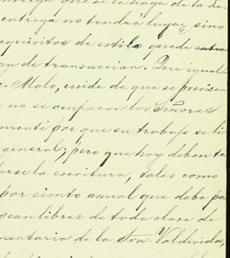 entrega que se le haga de la
entrega no tendra lugar, sino
requisitos de estilo quede
ra de transaccion. Que igual
e. Malo, cuide de que se
no se ocuparon los Señores
mente por que su trabajo se li
general; pero que hoy deben
la escritura, tales como
por ciento anual que debe pa
sean libres de toda clase de
mentario de la Sra. Valdivides,